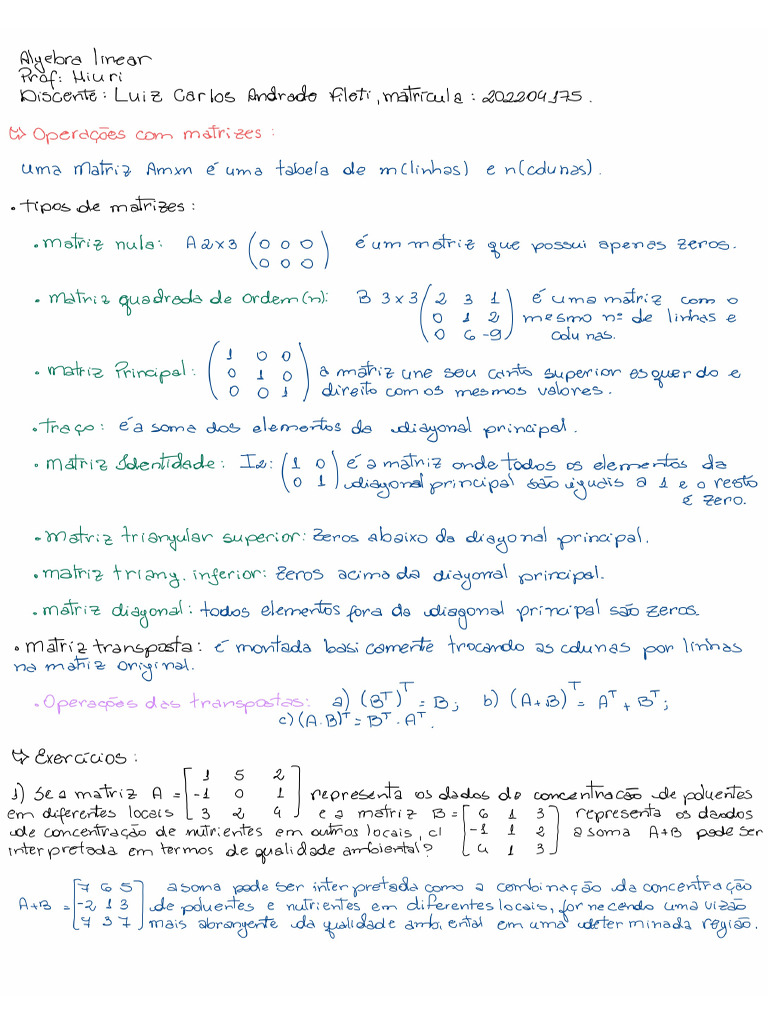 Algebra linear
Prof: Hiuri
Discente: Luiz Carlos Andrade Fileti, matrícula: 202204175.
↳ Operações com matrizes:
uma matriz Amxn é uma tabela de m(linhas) e n(colunas).
• tipos de matrizes:
• matriz nula: A 2x3 (0 0 0) é um matriz que possui apenas zeros.
(0 0 0)
• matriz quadrada de ordem(n): B 3x3 (2 3 1) é uma matriz com o
(0 1 2) mesmo nº de linhas e
(0 6 -9) colunas.
(1 0 0)
• matriz Principal: (0 1 0) a matriz une seu canto superior esquerdo e
(0 0 1) direito com os mesmos valores.
• traço: é a soma dos elementos da diagonal principal.
• matriz Identidade: I2: (1 0) é a matriz onde todos os elementos da
(0 1) diagonal principal são iguais a 1 e o resto
é zero.
• matriz triangular superior: Zeros abaixo da diagonal principal.
• matriz triang. inferior: Zeros acima da diagonal principal.
• matriz diagonal: todos elementos fora da diagonal principal são zeros.
• matriz transposta: é montada basicamente trocando as colunas por linhas
na matriz original.
• Operações das transpostas: a) (B^T)^T = B; b) (A+B)^T = A^T + B^T;
c) (A.B)^T = B^T . A^T.
↳ Exercícios:
[1 5 2]
1) Se a matriz A = [-1 0 1] representa os dados de concentração de poluentes
em diferentes locais [3 2 4] e a matriz B = [6 1 3] representa os dados
de concentração de nutrientes em outros locais, cl [-1 1 2] a soma A+B pode ser
interpretada em termos de qualidade ambiental? [4 1 3]
[7 6 5] a soma pode ser interpretada como a combinação da concentração
A+B = [-2 1 3] de poluentes e nutrientes em diferentes locais, fornecendo uma vizão
[7 3 7] mais abrangente da qualidade ambiental em uma determinada região.